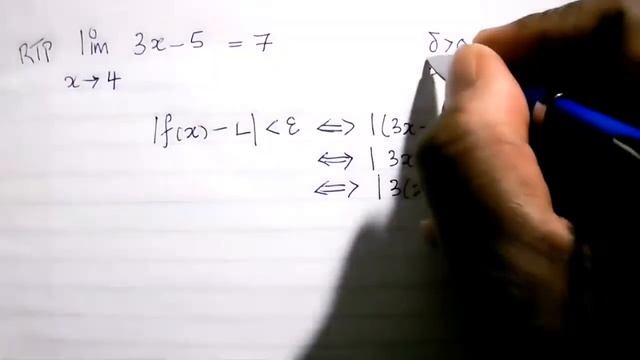 RTP lim 3x - 5 = 7 δ >
x → 4
|f(x) - L| < ε ⟺ |(3x -
⟺ | 3x
⟺ | 3(